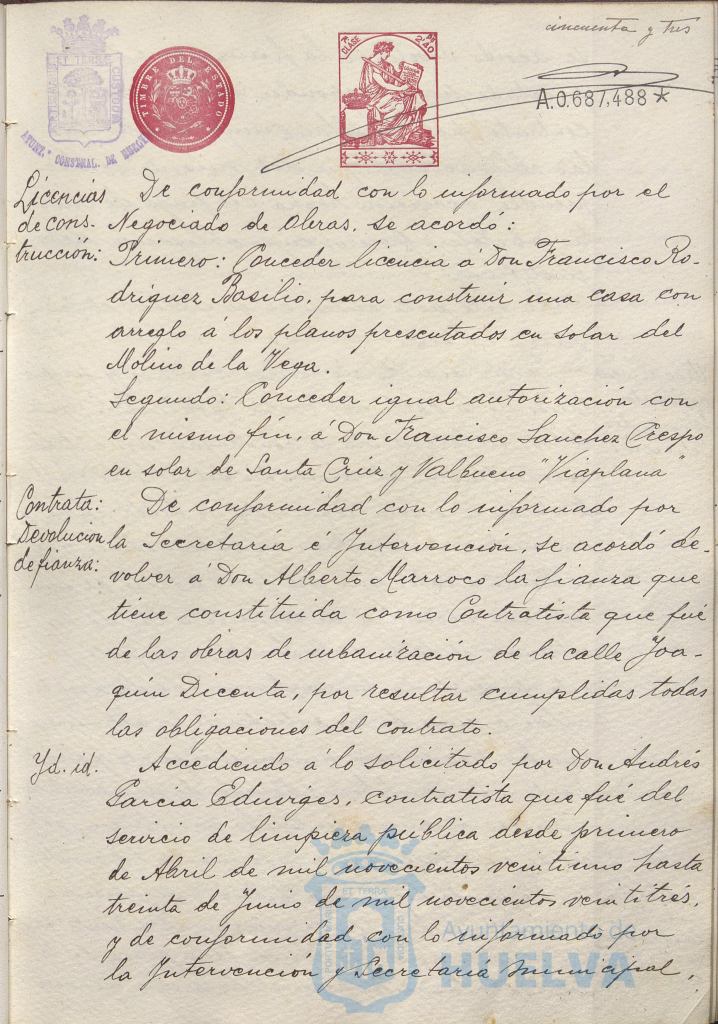 cincuenta y tres
7ª CLASE 2'40 PTS
TIMBRE DEL ESTADO
ET TERRÆ CUSTODIA
AYUNT.º CONSTNAL. DE HUELVA
A.0.687,488 *
Licencias
de cons-
trucción:
De conformidad con lo informado por el
Negociado de Obras, se acordó:
Primero: Conceder licencia á Don Francisco Ro-
driguez Basilio, para construir una casa con
arreglo á los planos presentados en solar del
Molino de la Vega.
Segundo: Conceder igual autorización con
el mismo fin, á Don Francisco Sanchez Crespo
en solar de Santa Crúz y Valbueno "Viaplana"
Contrata:
Devolucion
de fianza:
De conformidad con lo informado por
la Secretaría é Intervención, se acordó de-
volver á Don Alberto Marroco la fianza que
tiene constituida como Contratista que fué
de las obras de urbanización de la calle Joa-
quin Dicenta, por resultar cumplidas todas
las obligaciones del contrato.
Yd. id.
Accediendo á lo solicitado por Don Andrés
Garcia Eduviges, contratista que fué del
servicio de limpieza pública desde primero
de Abril de mil novecientos veintiuno hasta
treinta de Junio de mil novecientos veintitrés,
y de conformidad con lo informado por
la Intervención y Secretaria municipal,
ET TERRA
Ayuntamiento de
HUELVA